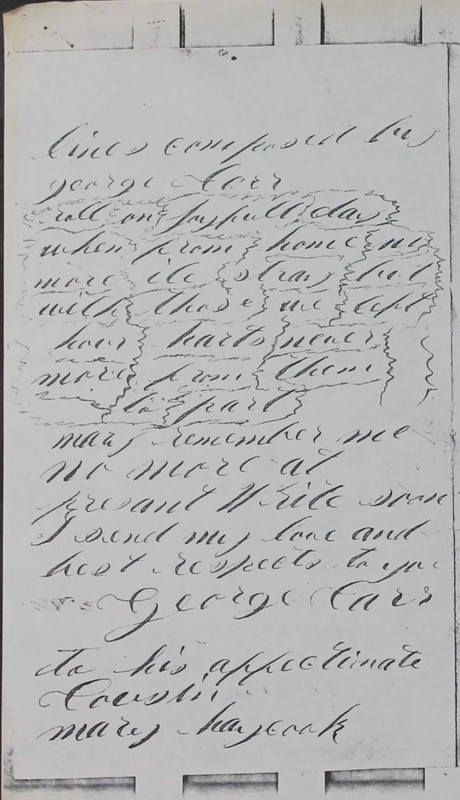 lines composed by
george Carr
roll on joyfull day
when from home no
more ile stray but
with those we left
hour harts never
more from them
to part
mary remember me
no more at
presant Write soon
I send my love and
best respects to you
George Carr
to his affectinate
Cousin
mary haycock